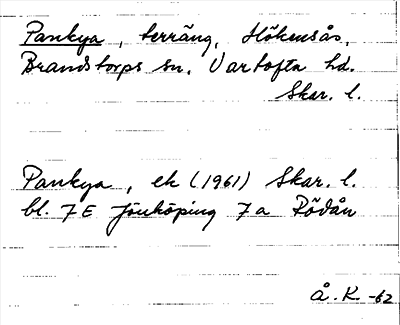 Pankya, terräng, Hökensås,
Brandstorps sn. Vartofta hd.
Skar. l.
Pankya, ek (1961) Skar. l.
bl. 7E Jönköping 7a Rödån
Å. K. -62